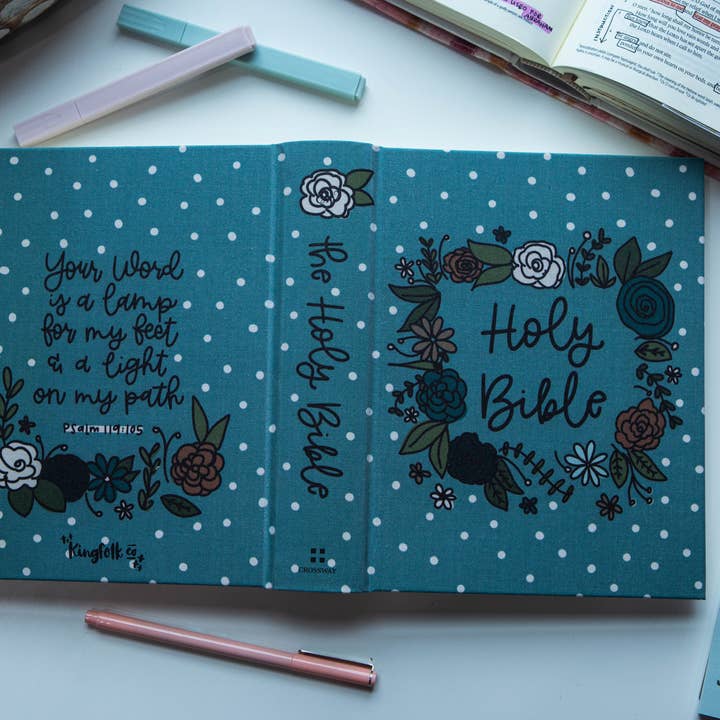 Your Word
is a lamp
for my feet
& a light
on my path
Psalm 119:105
Kingfolk co
the Holy Bible
CROSSWAY
Holy
Bible